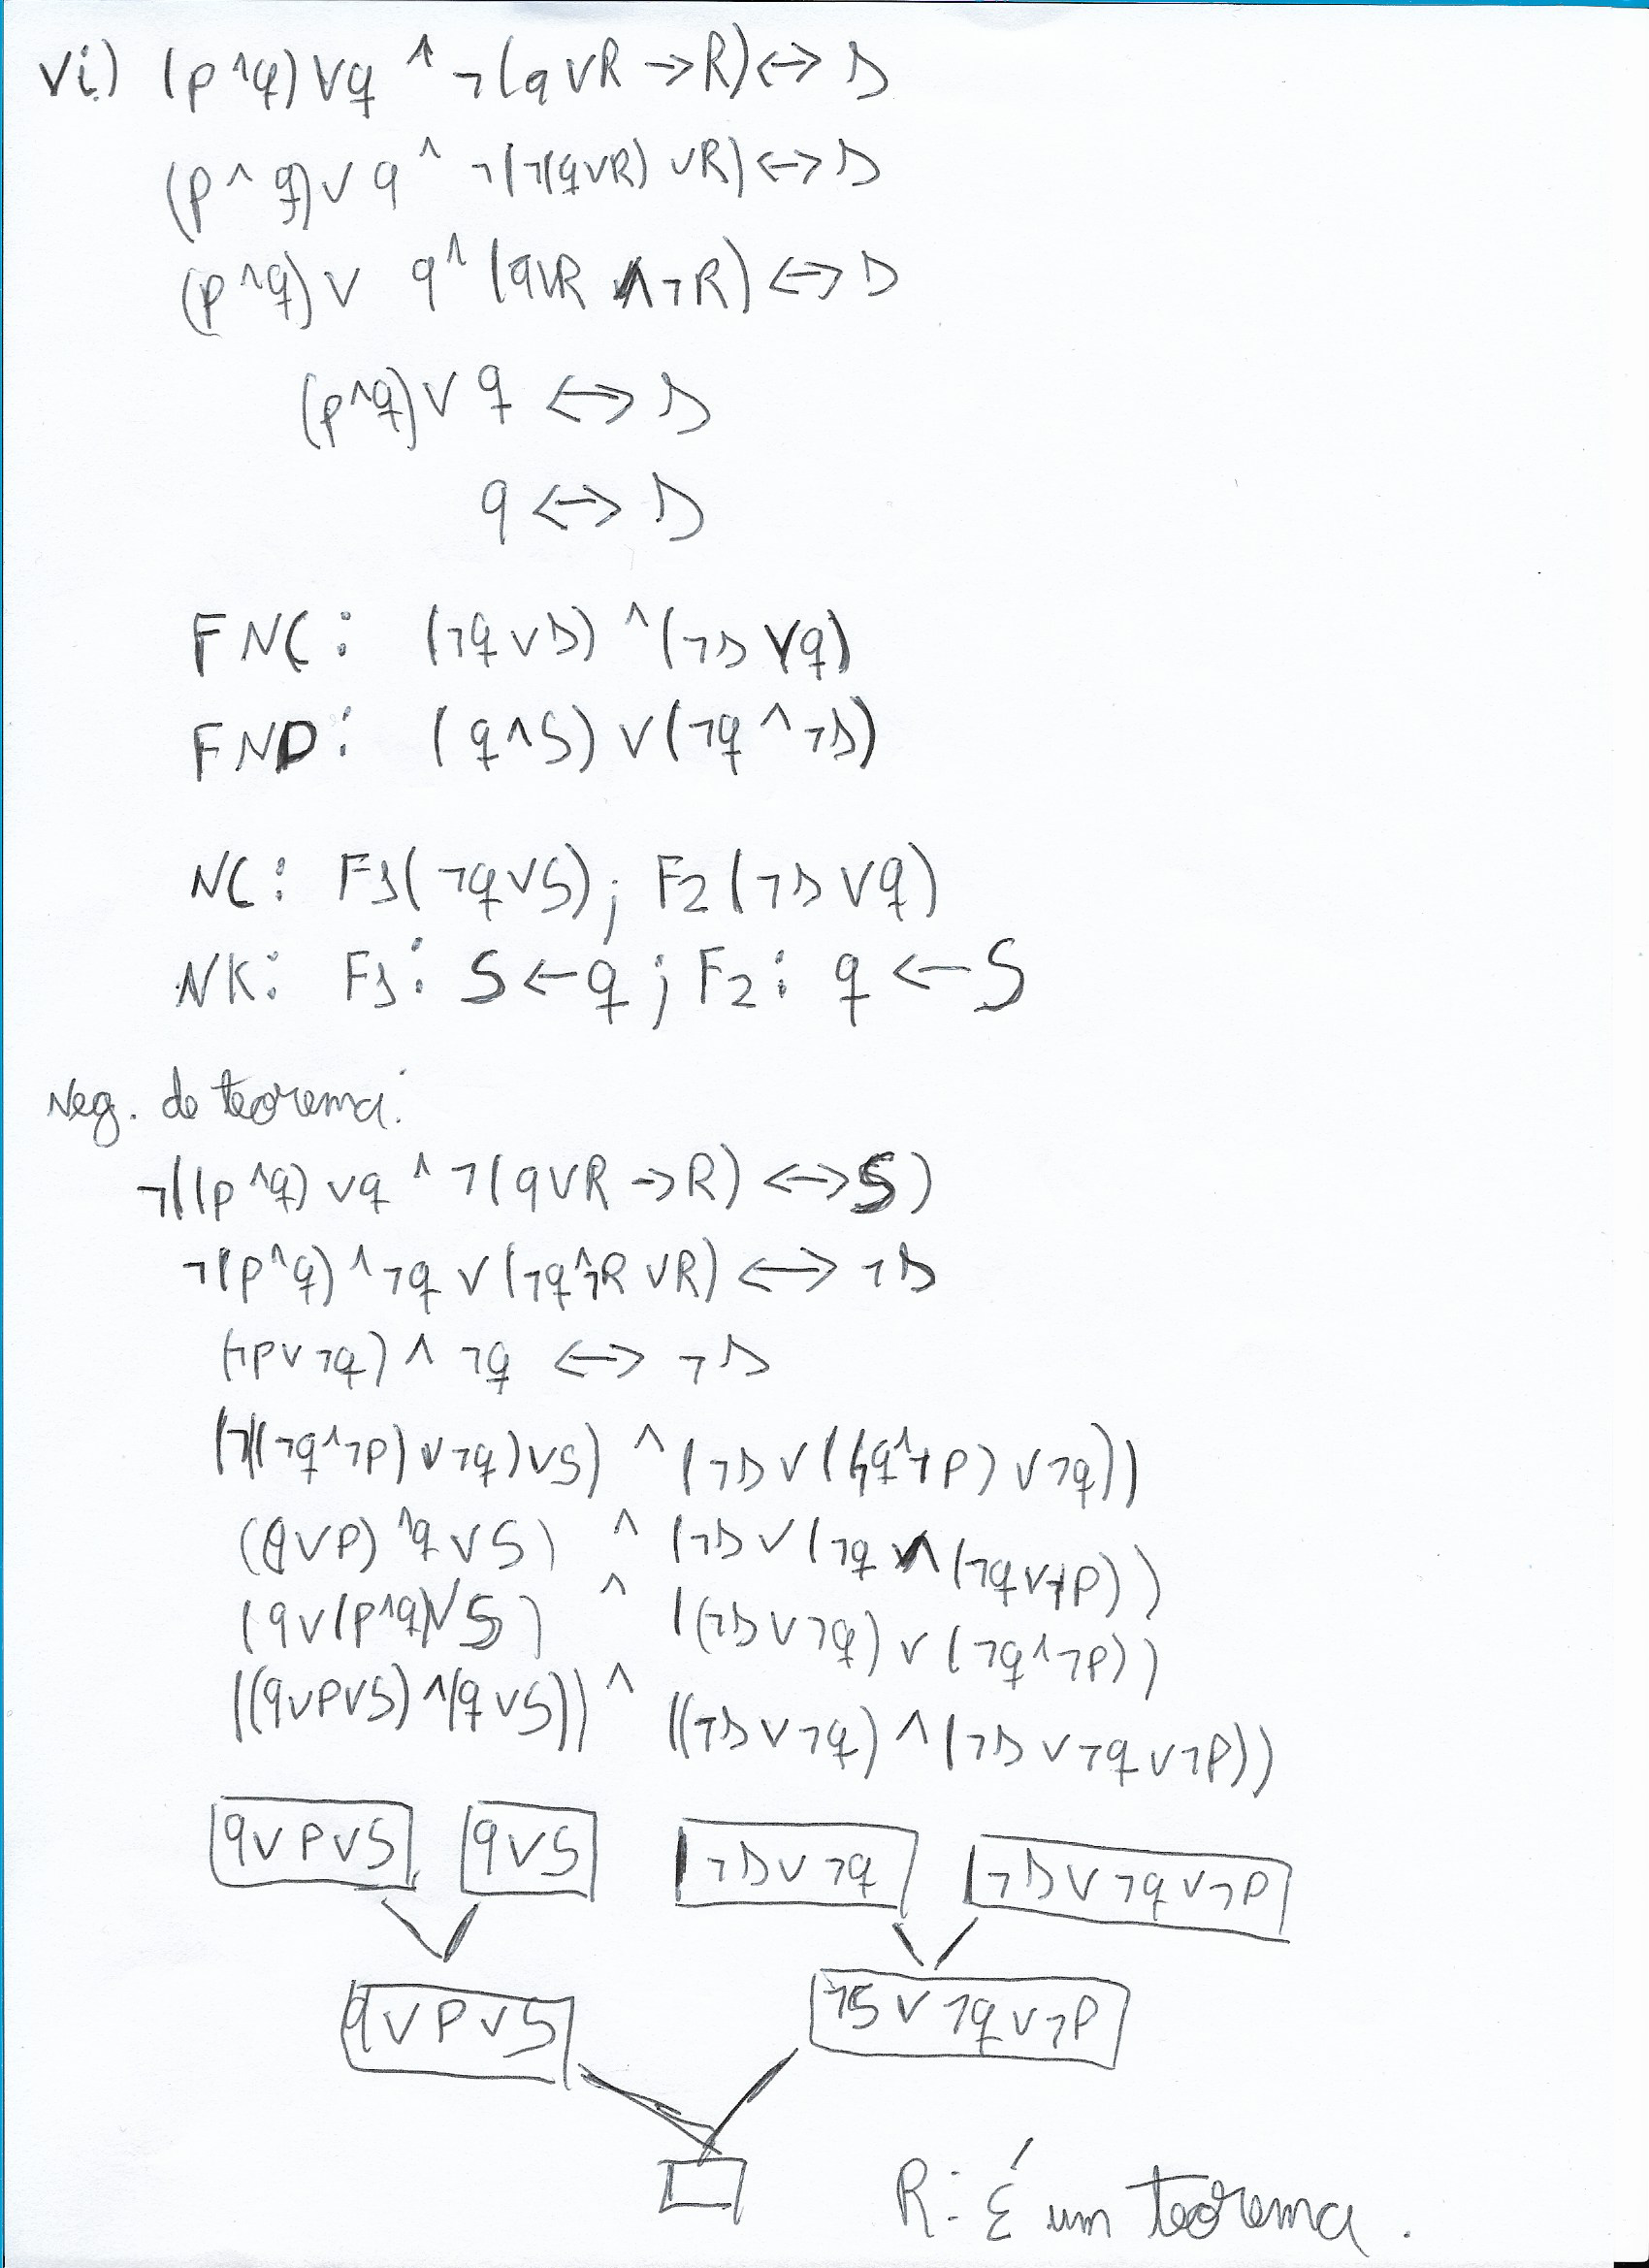 vi.) (p ^ q) ∨ q ^ ¬(q ∨ R → R) ↔ s
(p ^ q) ∨ q ^ ¬(¬(q ∨ R) ∨ R) ↔ s
(p ^ q) ∨ q ^ (q ∨ R ∧ ¬R) ↔ s
(p ^ q) ∨ q ↔ s
q ↔ s
FNC: (¬q ∨ s) ^ (¬s ∨ q)
FND: (q ∧ S) ∨ (¬q ^ ¬s)
NC: F1(¬q ∨ S); F2(¬s ∨ q)
NK: F1: S ← q; F2: q ← S
Neg. do teorema:
¬((p ^ q) ∨ q ^ ¬(q ∨ R → R) ↔ S)
¬(p ^ q) ^ ¬q ∨ (¬q ^ ¬R ∨ R) ↔ ¬s
(¬p ∨ ¬q) ^ ¬q ↔ ¬s
(¬((¬q ^ ¬p) ∨ ¬q) ∨ S) ^ (¬s ∨ ((¬q ^ ¬p) ∨ ¬q))
(q ∨ p) ^ q ∨ S) ^ (¬s ∨ (¬q ∧ (¬q ∨ ¬p))
(q ∨ (p ^ q) ∨ S) ^ ((¬s ∨ ¬q) ∨ (¬q ^ ¬p))
((q ∨ p ∨ S) ^ (q ∨ S)) ^ ((¬s ∨ ¬q) ∧ (¬s ∨ ¬q ∨ ¬p))
q ∨ p ∨ S q ∨ S ¬s ∨ ¬q ¬s ∨ ¬q ∨ ¬p
q ∨ p ∨ S ¬S ∨ ¬q ∨ ¬p
R: É um teorema.